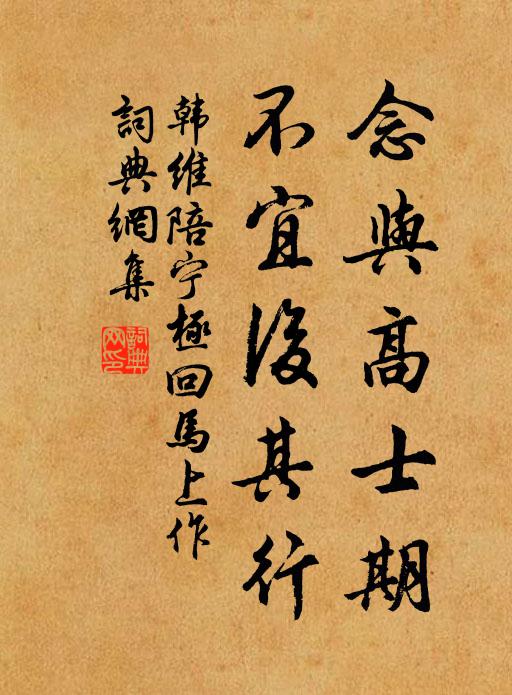 念與高士期
不宜後其行
韩維陪宁極回馬上作
詞典網集
詞典
网印